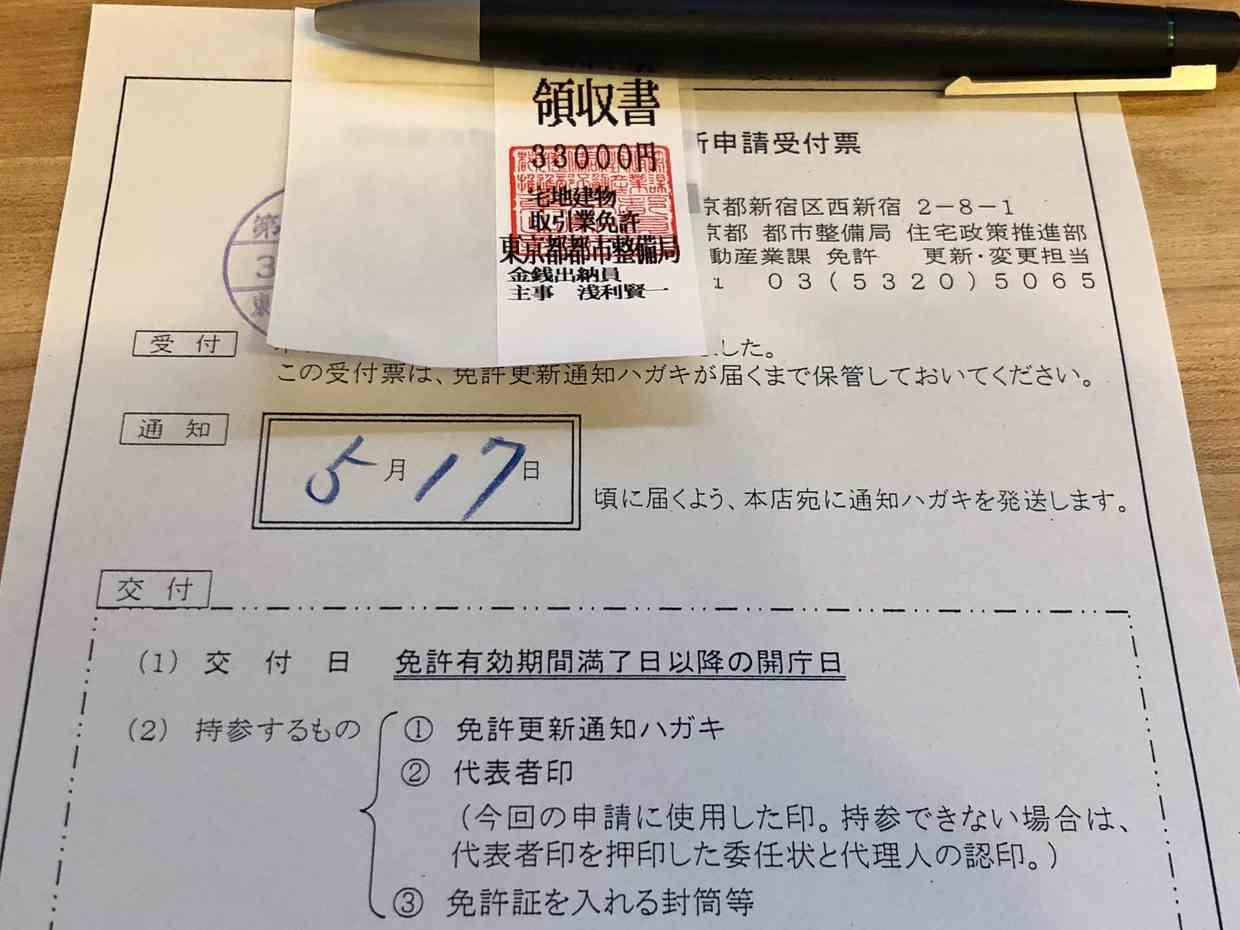 領収書
33000円
宅地建物
取引業免許
東京都都市整備局
金銭出納員
主事 浅利賢一
申請受付票
京都新宿区西新宿 2-8-1
京都 都市整備局 住宅政策推進部
動産業課 免許 更新・変更担当
03(5320)5065
第
3
東
受付
した。
この受付票は、免許更新通知ハガキが届くまで保管しておいてください。
通知
5月17日
頃に届くよう、本店宛に通知ハガキを発送します。
交付
(1) 交付日 免許有効期間満了日以降の開庁日
(2) 持参するもの ① 免許更新通知ハガキ
② 代表者印
(今回の申請に使用した印。持参できない場合は、
代表者印を押印した委任状と代理人の認印。)
③ 免許証を入れる封筒等